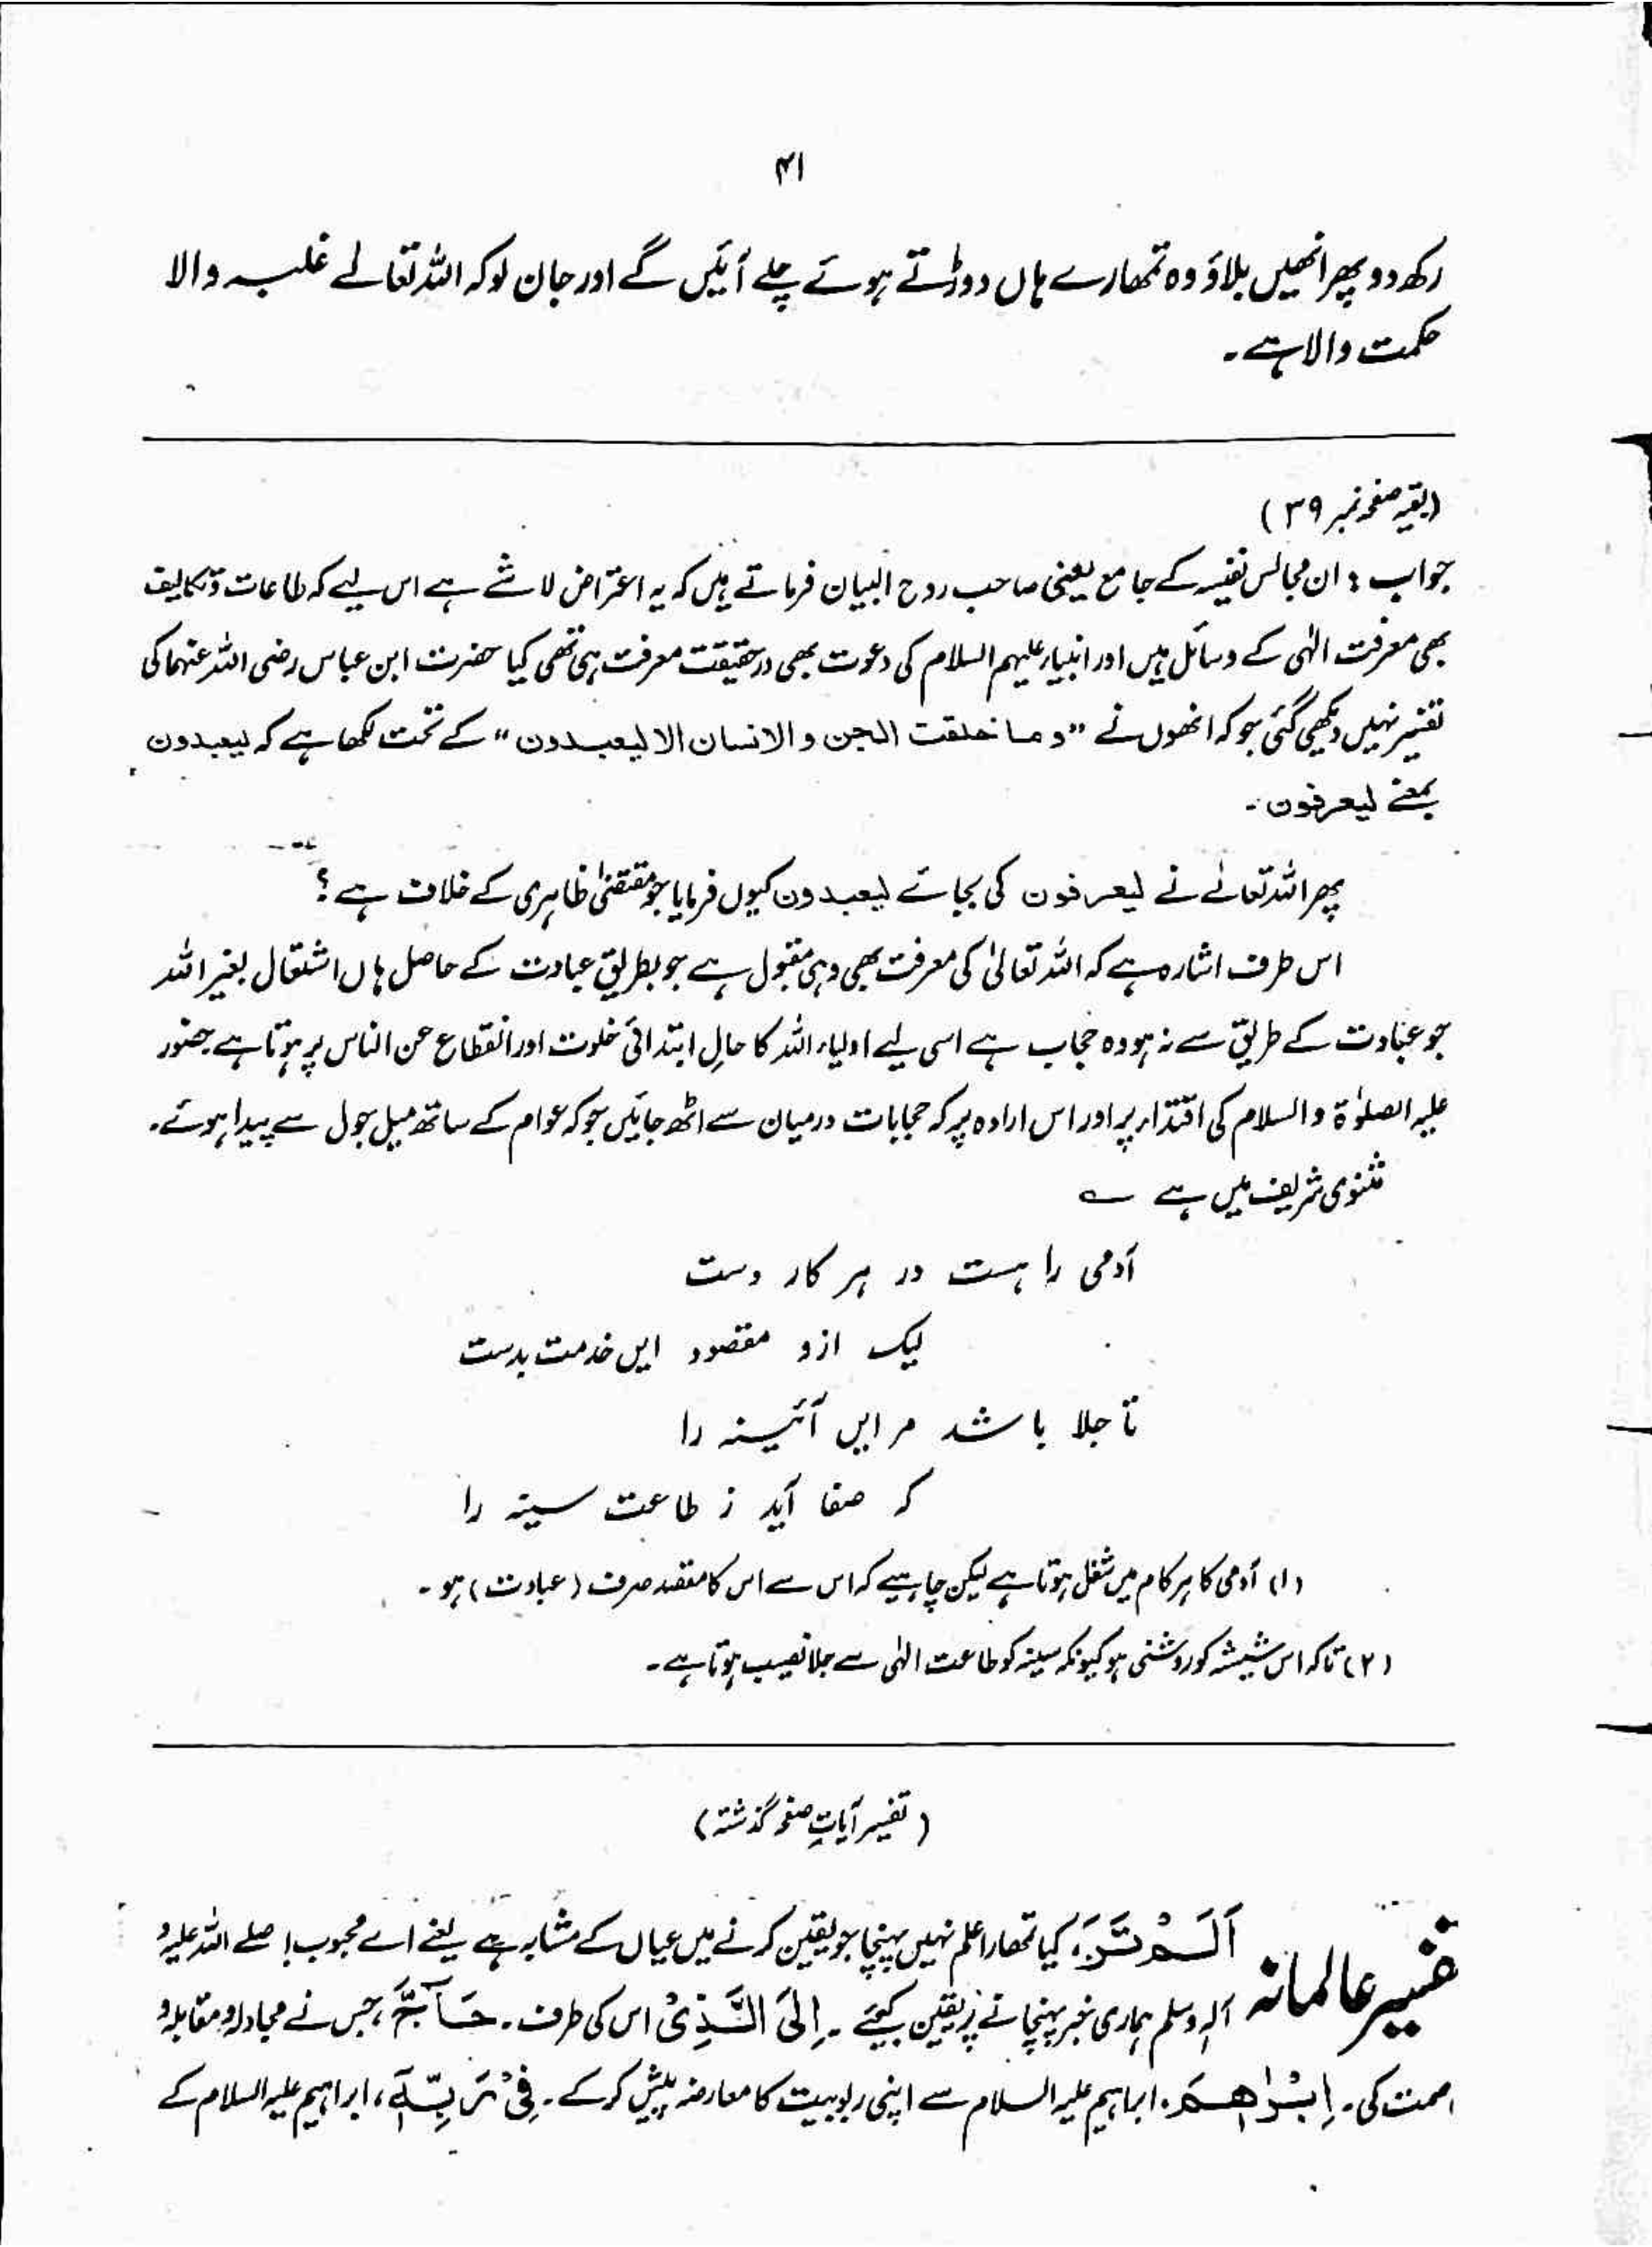 ۴۱
رکھ دو پھر انھیں بلاؤ وہ تمھارے ہاں دوڑتے ہوئے چلے آئیں گے اور جان لو کہ اللہ تعالےٰ غلبہ والا
حکمت والا ہے۔
(بقیہ صفحہ نمبر ۳۹)
جواب : ان مجالس نفیسہ کے جامع یعنی صاحب روح البیان فرماتے ہیں کہ یہ اعتراض لاشے ہے اس لیے کہ طاعات و تکالیف
بھی معرفت الٰہی کے وسائل ہیں اور انبیاء علیہم السلام کی دعوت بھی درحقیقت معرفت ہی تھی کیا حضرت ابن عباس رضی اللہ عنہما کی
تفسیر نہیں دیکھی گئی جو کہ انھوں نے "وما خلقت الجن والانسان الا لیعبدون" کے تحت لکھا ہے کہ لیعبدون
بمعنے لیعرفون۔
پھر اللہ تعالےٰ نے لیعرفون کی بجائے لیعبدون کیوں فرمایا جو مقتضیٰ ظاہری کے خلاف ہے ؟
اس طرف اشارہ ہے کہ اللہ تعالیٰ کی معرفت بھی وہی مقبول ہے جو بطریق عبادت کے حاصل ہاں اشتغال بغیر اللہ
جو عبادت کے طریق سے نہ ہو وہ حجاب ہے اسی لیے اولیاء اللہ کا حالِ ابتدائی خلوت اور انقطاع عن الناس پر ہوتا ہے حضور
علیہ الصلوٰۃ والسلام کی اقتداء پر اور اس ارادہ پر کہ حجابات درمیان سے اٹھ جائیں جو کہ عوام کے ساتھ میل جول سے پیدا ہوئے۔
مثنوی شریف میں ہے ؎
آدمی را ہست در ہر کار دست
لیک ازو مقصود ایں خدمت بدست
تا جلا باشد مر ایں آئینہ را
کہ صفا آید ز طاعت سینہ را
(۱) آدمی کا ہر کام میں شغل ہوتا ہے لیکن چاہیے کہ اس سے اس کا مقصد صرف (عبادت) ہو۔
(۲) تاکہ اس شیشہ کو روشنی ہو کیونکہ سینہ کو طاعت الٰہی سے جلا نصیب ہوتا ہے۔
(تفسیر آیاتِ صفحہ گذشتہ)
تفسیر عالمانہ اَلَمْ تَرَ، کیا تمھارا علم نہیں پہنچا جو یقین کرنے میں عیاں کے مشابہ ہے یعنے اے محبوب! صلے اللہ علیہ و
آلہ وسلم ہماری خبر پہنچانے پر یقین کیجئے ۔ اِلَى الَّذِیْ اس کی طرف ۔ حَآجَّ، جس نے مجادلہ و مقابلہ و
مت کی۔ اِبْرٰاهِمَ. ابراہیم علیہ السلام سے اپنی ربوبیت کا معارضہ پیش کرکے ۔ فِیْ رَبِّهٖٓ، ابراہیم علیہ السلام کے